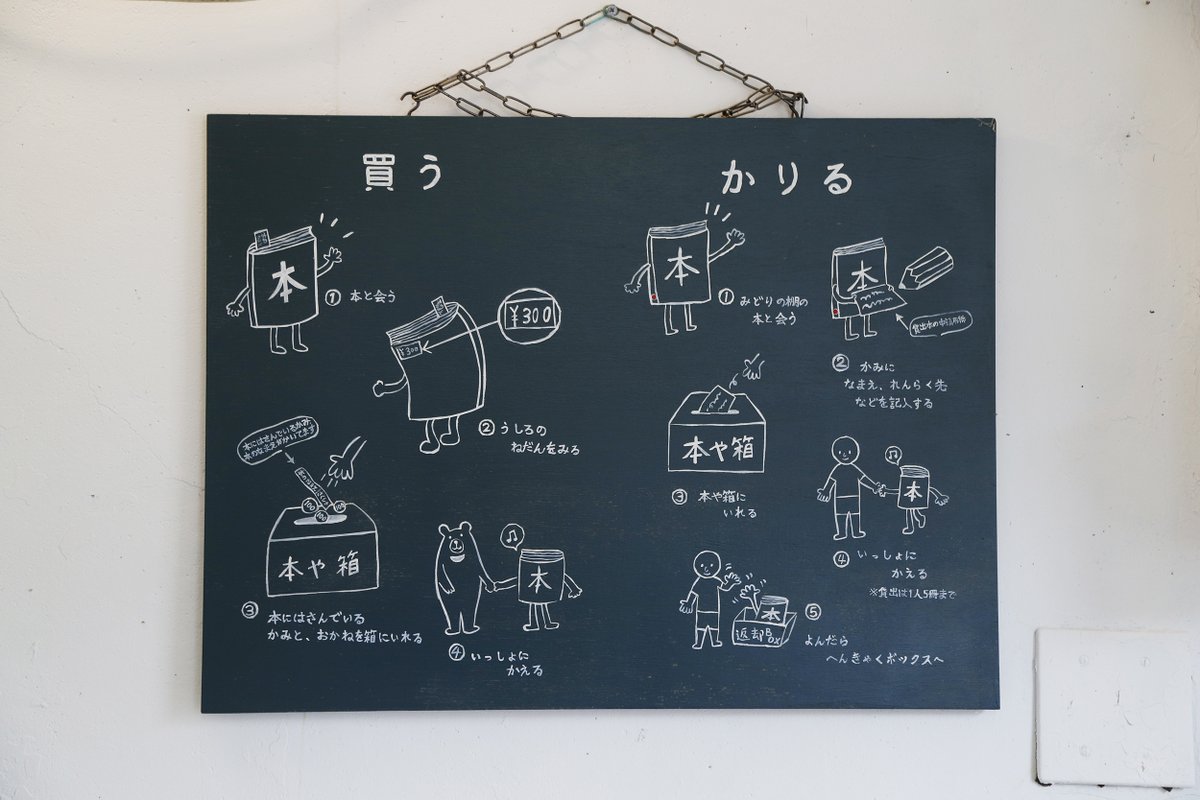 買う
本
① 本と会う
¥300
¥300
② うしろの
ねだんをみる
本にはさんでいるかみ
本のなまえがかいてます
100
100
100
本や箱
③ 本にはさんでいる
かみと、おかねを箱にいれる
本
④ いっしょに
かえる
かりる
本
① みどりの棚の
本と会う
本
② かみに
なまえ、れんらく先
などを記入する
本や箱
③ 本や箱に
いれる
本
④ いっしょに
かえる
※貸出は1人5冊まで
本
返却BOX
⑤ よんだら
へんきゃくボックスへ